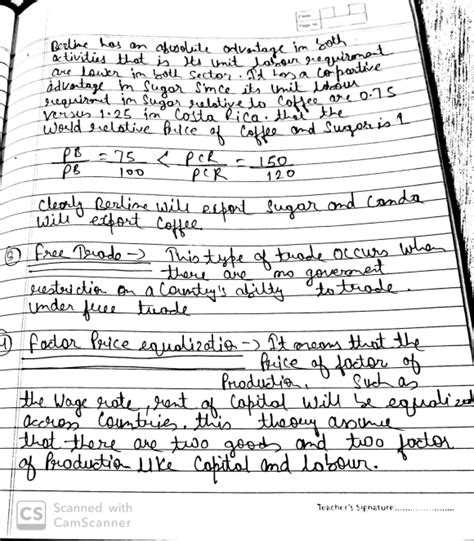 Berline has an absolute advantage in both
activities that is its unit labour requirement
are lower in both sector. It has a comparative
advantage in Sugar Since its unit labour
requirement in Sugar relative to Coffee are 0.75
versus 1.25 in Costa Rica. that the
World relative Price of Coffee and Sugar is 1
PB/PB = 75/100 < PCR/PCR = 150/120
Clearly Berline Will export Sugar and Canda
Will export Coffee
③ Free Trade → This type of trade occurs when
there are no goverment
restriction on a Country's ability to trade.
under free trade
Factor Price equalization → It means that the
Price of factor of
Production, Such as
the Wage rate, rent of Capital Will be equalized
accross Countries. this theory assume
that there are two goods and two factor
of Production like Capital and labour.
Teacher's Signature
CS Scanned with
CamScanner